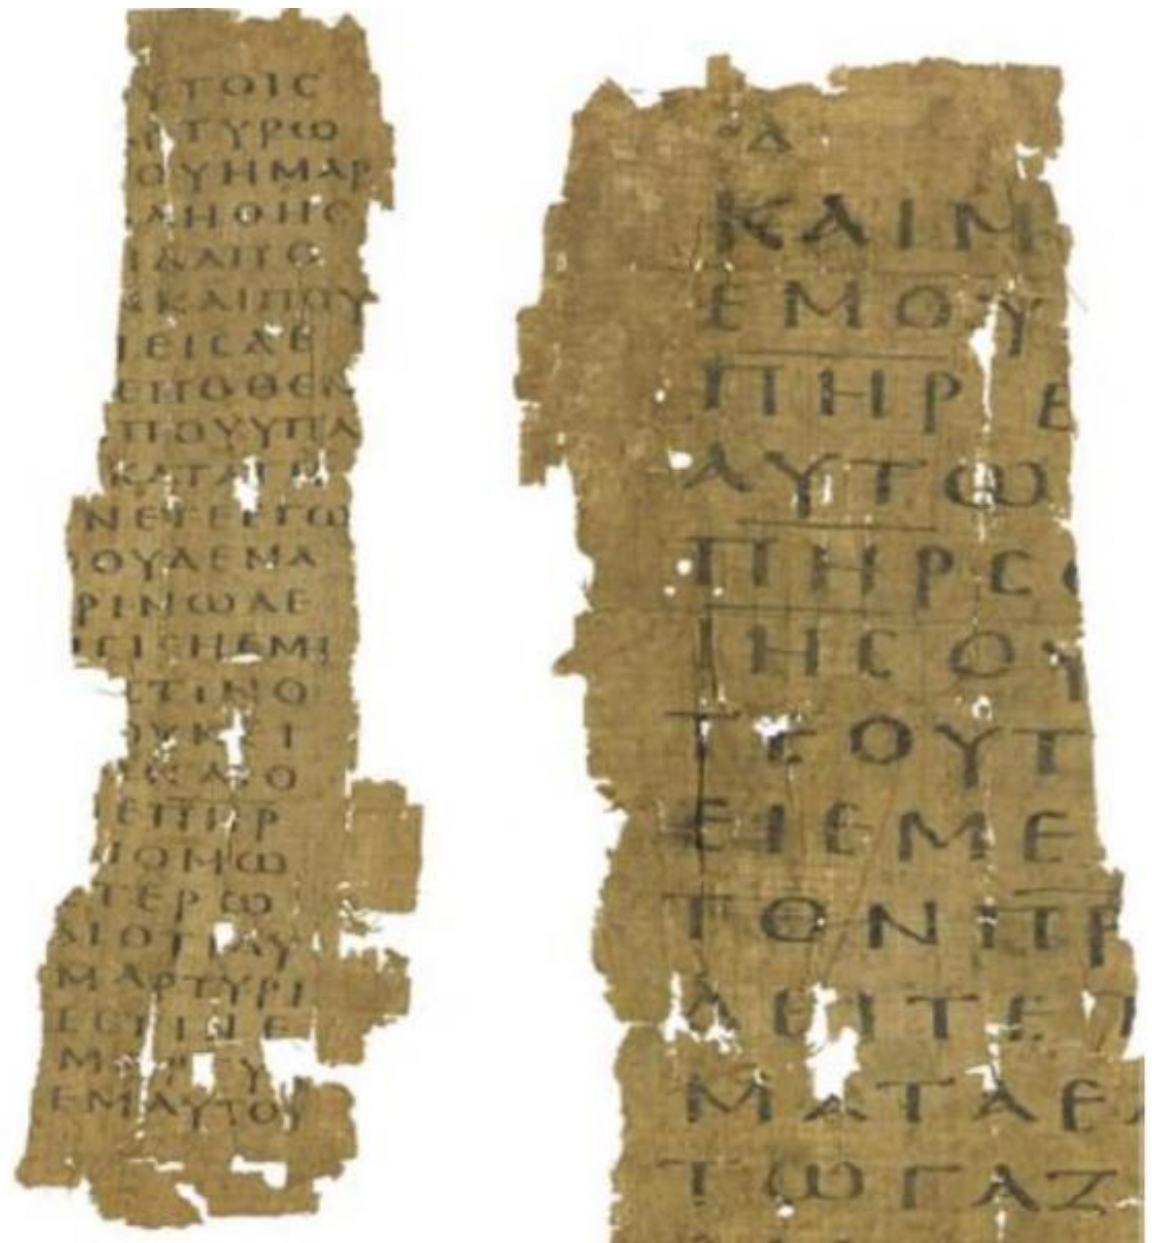 ΥΤΟΙϹ
ΡΤΥΡΩ
ΟΥΗΜΑΡ
ΛΗΘΗϹ
ΙΔΑΠΟ
ΚΑΙΠΟΥ
ΙΕΙϹΔΕ
ΕΠΟΘΕΝ
ΠΟΥΥΠΑ
ΚΑΤΑΤΗ
ΝΕΤΕΕΓΩ
ΟΥΔΕΝΑ
ΡΙΝΩΔΕ
ΙϹΙϹΗΕΜΗ
ϹΤΙΝΟ
ΟΥΚΕΙ
ΚΑΙΟ
ΕΠΗΡ
ΝΟΜΩ
ΤΕΡΩ
ΑΙΟΤΙΔΥ
ΜΑΡΤΥΡΙ
ΕϹΤΙΝΕ
Μ ΡΤΥ
ΕΜΑΥΤΟΥ
ΟΔ
ΚΑΙΜ
ΕΜΟΥ
ΠΗΡ Ε
ΑΥΤΩ
ΠΗΡϹΟ
ΙΗϹΟΥ
ΤΕΟΥΤ
ΕΙΕΜΕ
ΤΟΝΠΡ
ΔΕΙΤΕΤ
ΜΑΤΑΕΛ
ΤΩΓΑΖ